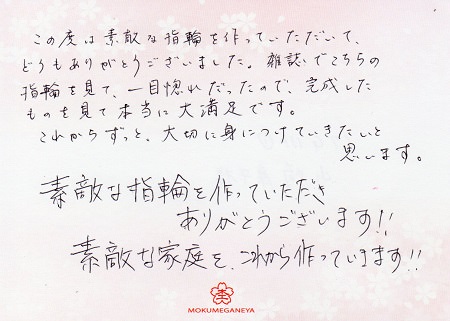 この度は素敵な指輪を作っていただいて、
どうもありがとうございました。雑誌でこちらの
指輪を見て、一目惚れだったので、完成した
ものを見て本当に大満足です。
これからずっと、大切に身につけていきたいと
思います。
素敵な指輪を作っていただき
ありがとうございます!!
素敵な家庭を、これから作っていきます!!
MOKUMEGANEYA